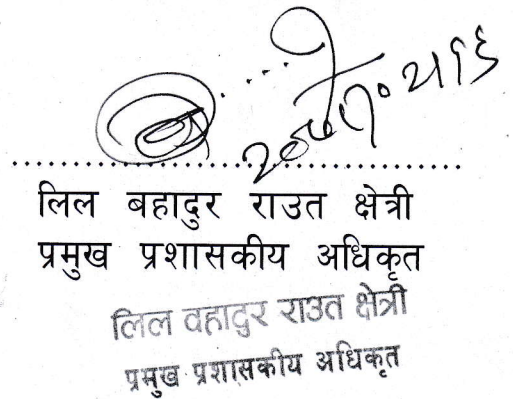 लिल बहादुर राउत क्षेत्री
प्रमुख प्रशासकीय अधिकृत
लिल वहादुर राउत क्षेत्री
प्रमुख प्रशासकीय अधिकृत